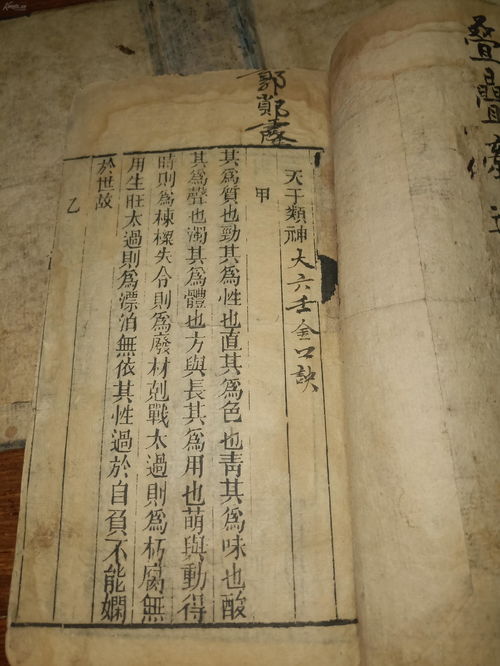 天干類神 大六壬金口訣
甲
其爲質也勁其爲性也直其爲色也靑其爲味也酸
其爲聲也濁其爲體也方與長其爲用也萌與動得
時則爲棟樑失令則爲廢材剋戰太過則爲朽腐無
用生旺太過則爲漂泊無依其性過於自負不能嫻
於世故
乙